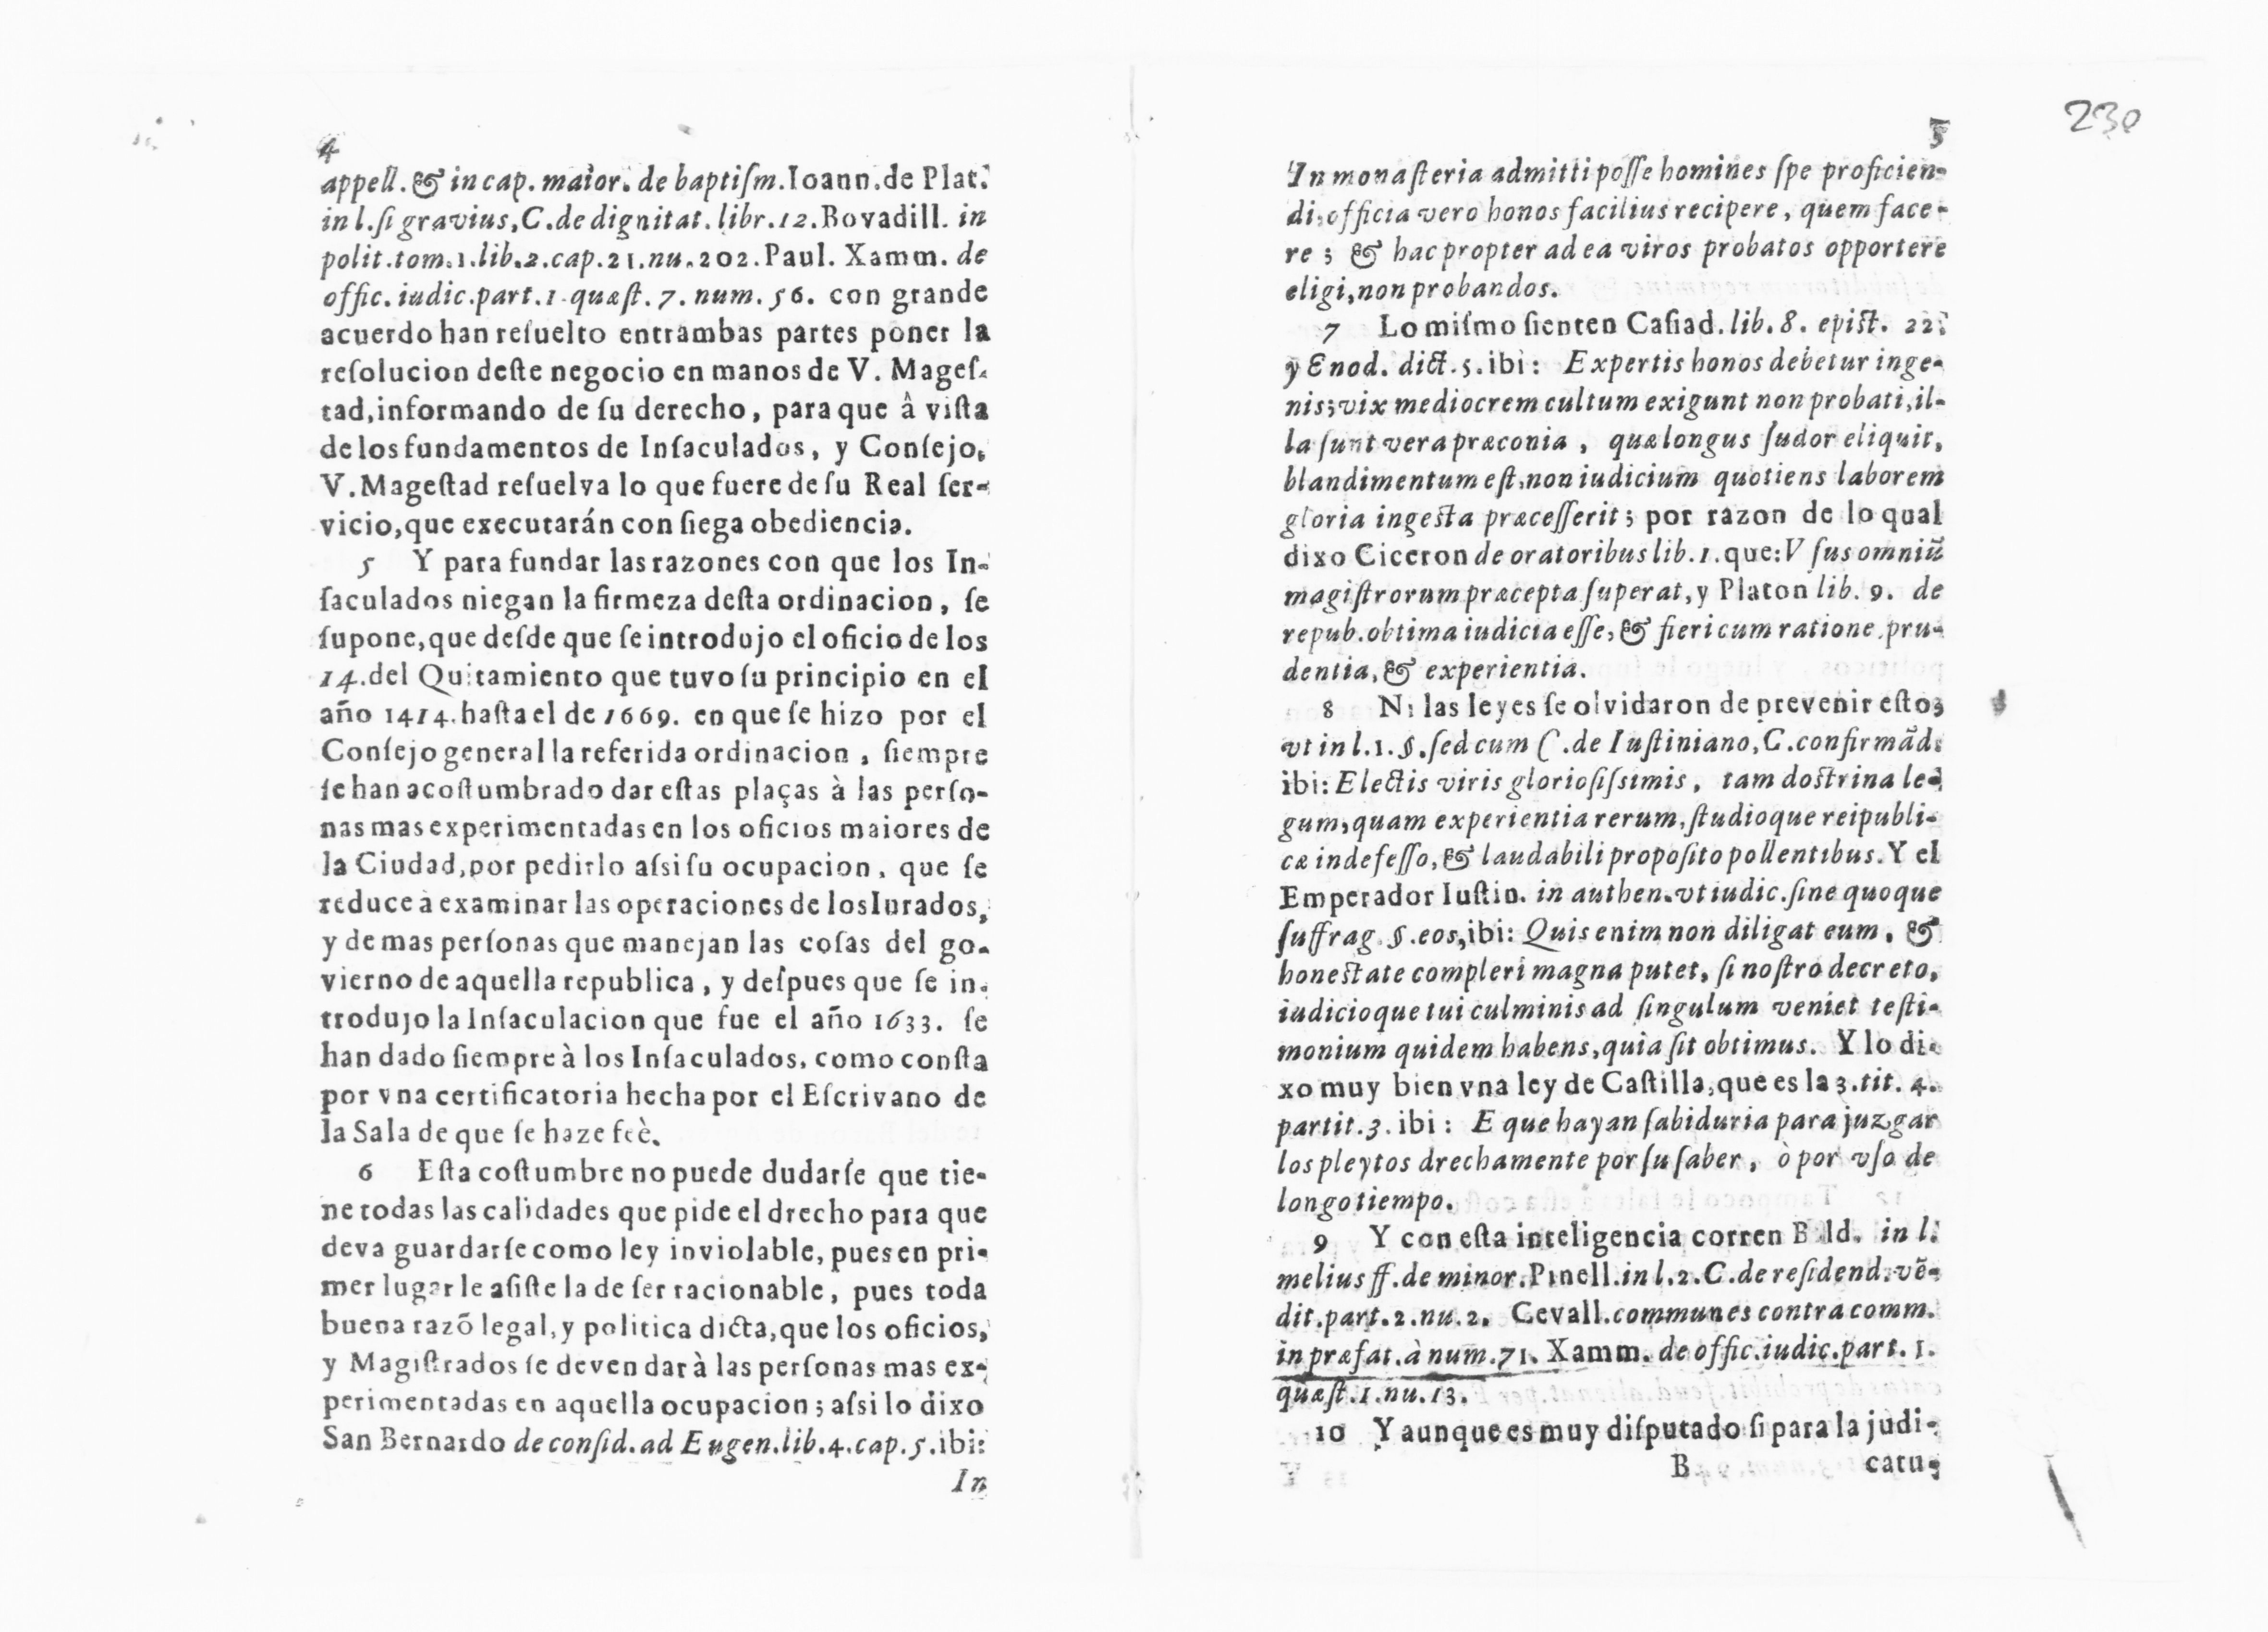 4
appell. & in cap. maior. de baptiſm. Ioann. de Plat.
in l. ſi gravius, C. de dignitat. libr. 12. Bovadill. in
polit. tom. 1. lib. 2. cap. 21. nu. 202. Paul. Xamm. de
offic. iudic. part. 1. quæſt. 7. num. 56. con grande
acuerdo han reſuelto entrambas partes poner la
reſolucion deſte negocio en manos de V. Mageſ-
tad, informando de ſu derecho, para que â viſta
de los fundamentos de Inſaculados, y Conſejo,
V. Mageſtad reſuelva lo que fuere de ſu Real ſer-
vicio, que executarán con ſiega obediencia.
5 Y para fundar las razones con que los In-
ſaculados niegan la firmeza deſta ordinacion, ſe
ſupone, que deſde que ſe introdujo el oficio de los
14. del Quitamiento que tuvo ſu principio en el
año 1414. haſta el de 1669. en que ſe hizo por el
Conſejo general la referida ordinacion, ſiempre
ſe han acoſtumbrado dar eſtas plaças à las perſo-
nas mas experimentadas en los oficios maiores de
la Ciudad, por pedirlo aſsi ſu ocupacion, que ſe
reduce à examinar las operaciones de los Iurados,
y demas perſonas que manejan las coſas del go-
vierno de aquella republica, y deſpues que ſe in-
trodujo la Inſaculacion que fue el año 1633. ſe
han dado ſiempre à los Inſaculados, como conſta
por vna certificatoria hecha por el Eſcrivano de
la Sala de que ſe haze feè.
6 Eſta coſtumbre no puede dudarſe que tie-
ne todas las calidades que pide el drecho para que
deva guardarſe como ley inviolable, pues en pri-
mer lugar le aſiſte la de ſer racionable, pues toda
buena razõ legal, y politica dicta, que los oficios,
y Magiſtrados ſe deven dar à las perſonas mas ex-
perimentadas en aquella ocupacion; aſsi lo dixo
San Bernardo de conſid. ad Eugen. lib. 4. cap. 5. ibi:
In
230
5
In monaſteria admitti poſſe homines ſpe proficien-
di, officia vero honos facilius recipere, quem face-
re; & hac propter ad ea viros probatos opportere
eligi, non probandos.
7 Lo miſmo ſienten Caſiad. lib. 8. epiſt. 22.
y Enod. dict. 5. ibi: Expertis honos debetur inge-
nis; vix mediocrem cultum exigunt non probati, il-
la ſunt vera præconia, quæ longus ſudor eliquit,
blandimentum eſt, non iudicium quotiens laborem
gloria ingeſta præceſſerit; por razon de lo qual
dixo Ciceron de oratoribus lib. 1. que: Vſus omniũ
magiſtrorum præcepta ſuperat, y Platon lib. 9. de
repub. obtima iudicia eſſe, & fieri cum ratione, pru-
dentia, & experientia.
8 Ni las leyes ſe olvidaron de prevenir eſto,
vt in l. 1. §. ſed cum C. de Iuſtiniano, C. confirmãd.
ibi: Electis viris glorioſiſsimis, tam doſtrina le-
gum, quam experientia rerum, ſtudioque reipubli-
cæ indefeſſo, & laudabili propoſito pollentibus. Y el
Emperador Iuſtin. in authen. vt iudic. ſine quoque
ſuffrag. §. eos, ibi: Quis enim non diligat eum, &
honeſtate compleri magna putet, ſi noſtro decreto,
iudicioque tui culminis ad ſingulum veniet teſti-
monium quidem habens, quia ſit obtimus. Y lo di-
xo muy bien vna ley de Caſtilla, que es la 3. tit. 4.
partit. 3. ibi: E que hayan ſabiduria para juzgar
los pleytos drechamente por ſu ſaber, ò por vſo de
longo tiempo.
9 Y con eſta inteligencia corren Bald. in l.
melius ff. de minor. Pinell. in l. 2. C. de reſidend. vẽ-
dit. part. 2. nu. 2. Cevall. communes contra comm.
in præfat. à num. 71. Xamm. de offic. iudic. part. 1.
quæſt. 1. nu. 13.
10 Y aunque es muy diſputado ſi para la judi-
B catu-